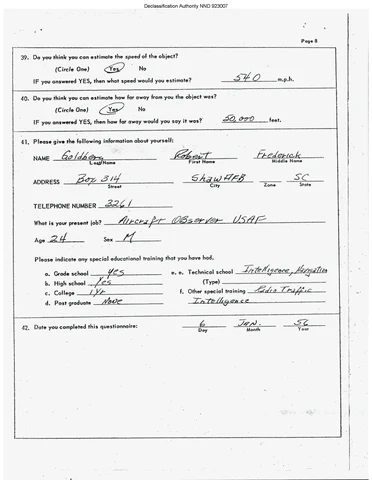 Declassification Authority NND 923007
Page 8
39. Do you think you can estimate the speed of the object?
(Circle One) Yes No
IF you answered YES, then what speed would you estimate? 540 m.p.h.
40. Do you think you can estimate how far away from you the object was?
(Circle One) Yes No
IF you answered YES, then how far away would you say it was? 50,000 feet.
41. Please give the following information about yourself:
NAME Goldberg Robert Frederick
Last Name First Name Middle Name
ADDRESS Box 314 Shaw AFB SC
Street City Zone State
TELEPHONE NUMBER 3261
What is your present job? Aircraft Observer USAF
Age 24 Sex M
Please indicate any special educational training that you have had.
a. Grade school yes e. e. Technical school Intelligence, Navigation
b. High school Yes (Type)
c. College 1 yr f. Other special training Radio Traffic
d. Post graduate None Intelligence
42. Date you completed this questionnaire: 6 Jan. 56
Day Month Year